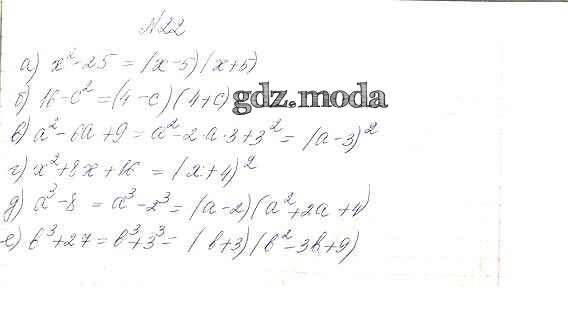 №22
а) x² - 25 = (x - 5)(x + 5)
б) 16 - c² = (4 - c)(4 + c) gdz.moda
в) a² - 6a + 9 = a² - 2·a·3 + 3² = (a - 3)²
г) x² + 8x + 16 = (x + 4)²
д) a³ - 8 = a³ - 2³ = (a - 2)(a² + 2a + 4)
е) b³ + 27 = b³ + 3³ = (b + 3)(b² - 3b + 9)